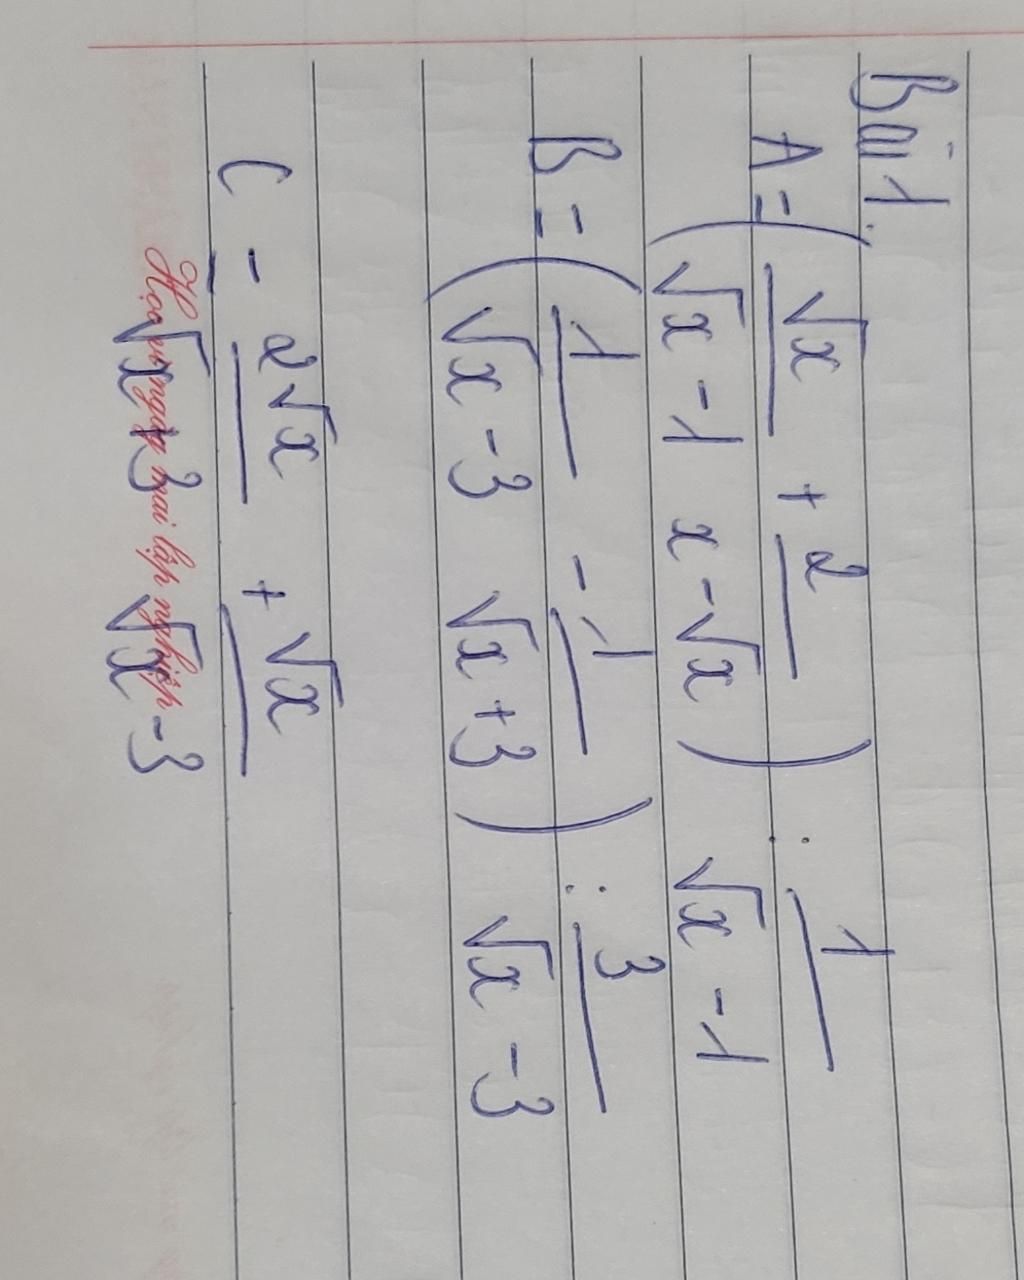 Bài 1.
A = (√x/(√x - 1) + 2/(x - √x)) : 1/(√x - 1)
B = (1/(√x - 3) - 1/(√x + 3)) : 3/(√x - 3)
C = 2√x/(√x + 3) + √x/(√x - 3)
Học ngay mai lập nghiệp